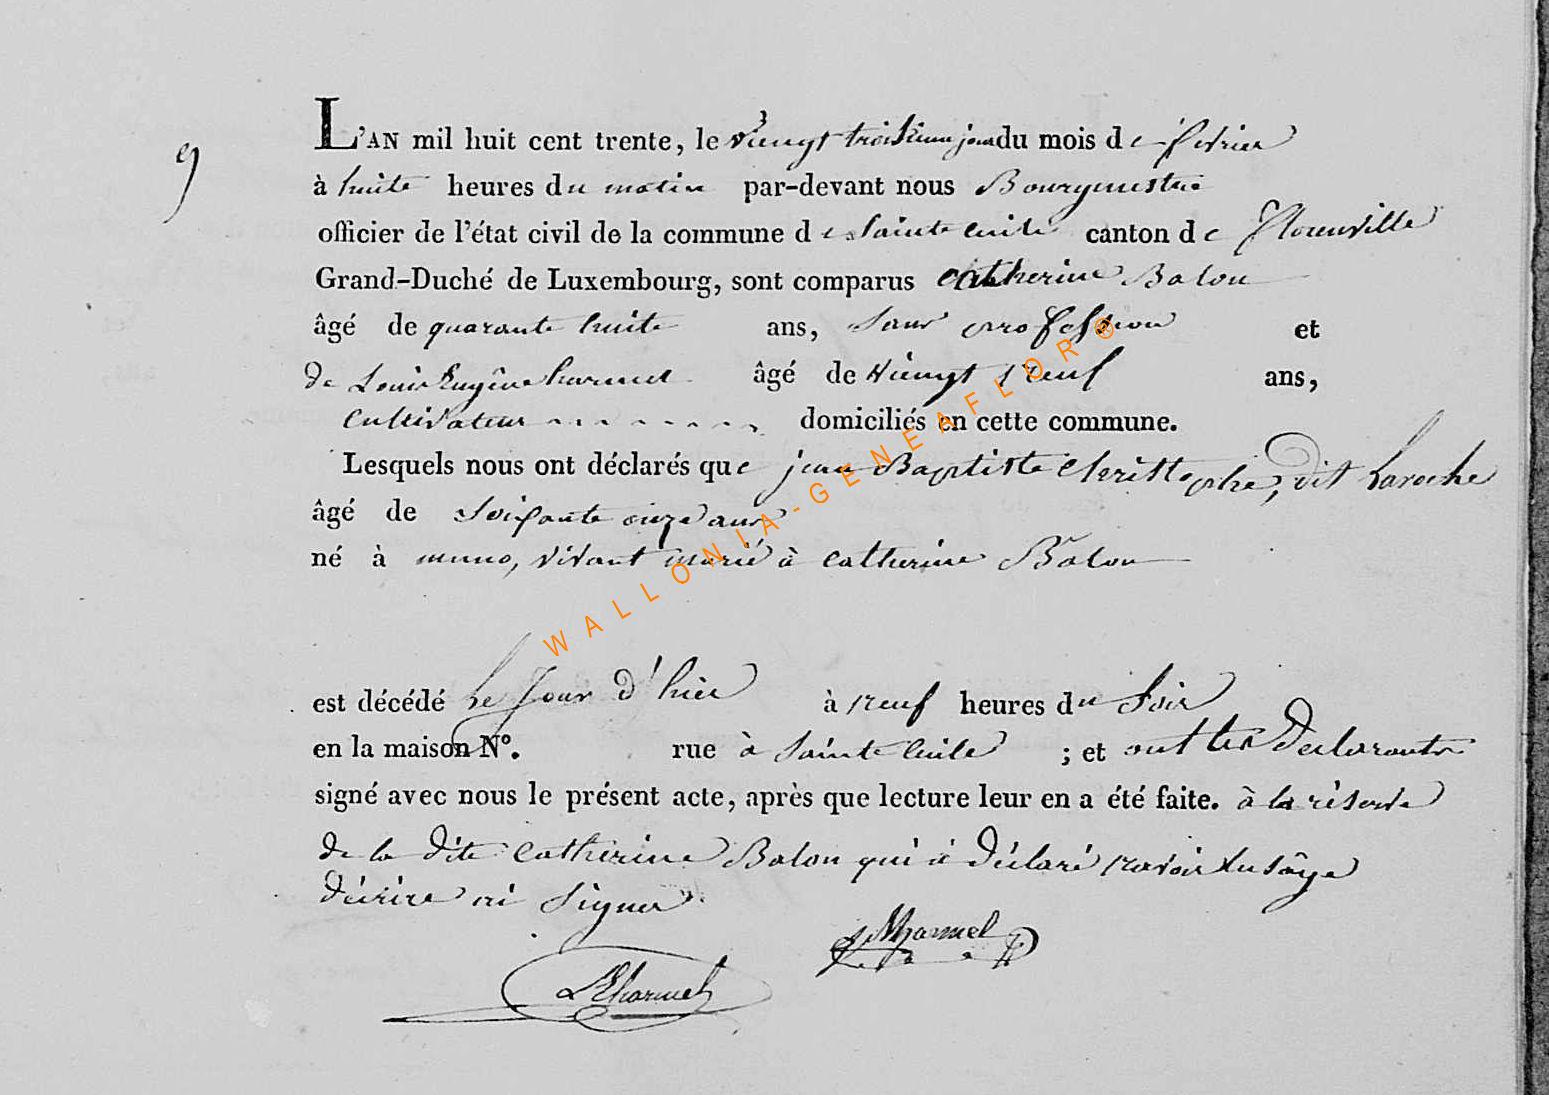 9
L'AN mil huit cent trente, le viengt troisieme jour du mois de fevrier
à huite heures du matin par-devant nous Bourgmestre
officier de l'état civil de la commune de Sainte Cecile canton de Florenville
Grand-Duché de Luxembourg, sont comparus Catherine Balon
âgé de quarante huite ans, sans profession et
de Louis Eugêne harmel âgé de viengt neuf ans,
Cultivateur domiciliés en cette commune.
Lesquels nous ont déclarés que jean Baptiste Christophe, dit Laroche
âgé de Soixante onze ans
né à muno, vivant marié à Catherine Balon
est décédé Le Jour d'hier à neuf heures du Soir
en la maison N°. rue à Sainte Cecile ; et ont les Declarants
signé avec nous le présent acte, après que lecture leur en a été faite. à la réserve
de la dite Catherine Balon qui à déclaré navoir lusâge
décrire ni Signer
Harmel
LEharmel
WALLONIA-GENEAFLOR®